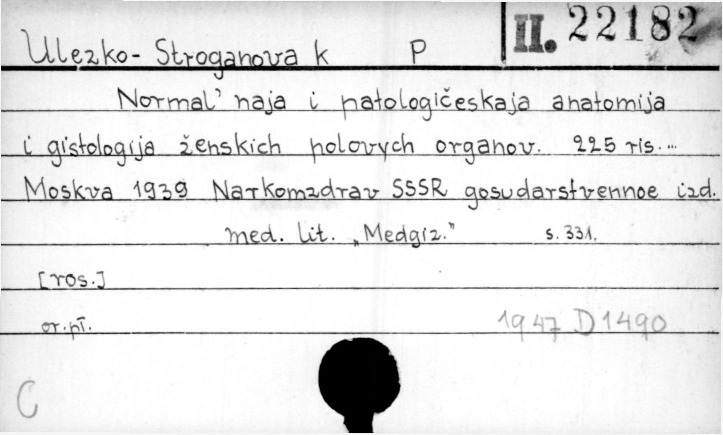 Ulezko-Stroganova k P II. 22182
Normal'naja i patologičeskaja anatomija
i gistologija ženskich polovych organov. 225 ris. ...
Moskva 1939 Narkomzdrav SSSR gosudarstvennoe izd.
med. lit. „Medgiz." s. 331.
[ros.]
or. pł.
1947 D 1490
C